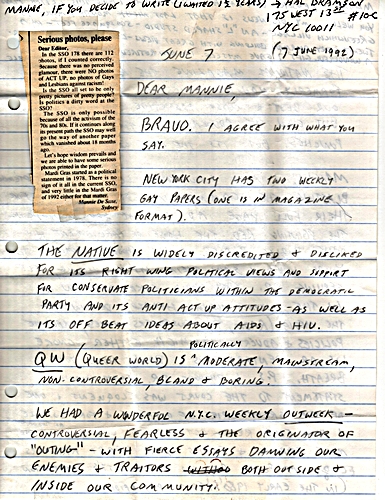 MANNIE, IF YOU DECIDE TO WRITE (I WAITED 1½ YEARS) → HAL DRAMSON
175 WEST 13th #10-C
NYC 10011
JUNE 7 (7 JUNE 1992)
Serious photos, please
Dear Editor,
In the SSO 178 there are 112
photos, if I counted correctly.
Because there was no perceived
glamour, there were NO photos
of ACT UP, no photos of Gays
and Lesbians against racism!
Is the SSO all set to be only
pretty pictures of pretty people?
Is politics a dirty word at the
SSO?
The SSO is only possible
because of all the activism of the
70s and 80s. If it continues along
its present path the SSO may well
go the way of another paper
which vanished about 18 months
ago.
Let's hope wisdom prevails and
we are able to have some serious
photos printed in the paper.
Mardi Gras started as a political
statement in 1978. There is no
sign of it all in the current SSO,
and very little in the Mardi Gras
of 1992 either for that matter.
Mannie De Saxe,
Sydney
DEAR MANNIE,
BRAVO. I AGREE WITH WHAT YOU
SAY.
NEW YORK CITY HAS TWO WEEKLY
GAY PAPERS (ONE IS IN MAGAZINE
FORMAT).
THE NATIVE IS WIDELY DISCREDITED & DISLIKED
FOR ITS RIGHT WING POLITICAL VIEWS AND SUPPORT
FOR CONSERVATIVE POLITICIANS WITHIN THE DEMOCRATIC
PARTY AND ITS ANTI ACT UP ATTITUDES - AS WELL AS
ITS OFF BEAT IDEAS ABOUT AIDS & HIV.
QW (QUEER WORLD) IS POLITICALLY "MODERATE, MAINSTREAM,
NON-CONTROVERSIAL, BLAND & BORING.
WE HAD A WONDERFUL N.Y.C. WEEKLY OUTWEEK -
CONTROVERSIAL, FEARLESS & THE ORIGINATOR OF
"OUTING" - WITH FIERCE ESSAYS DAMNING OUR
ENEMIES & TRAITORS BOTH OUTSIDE &
INSIDE OUR COMMUNITY.